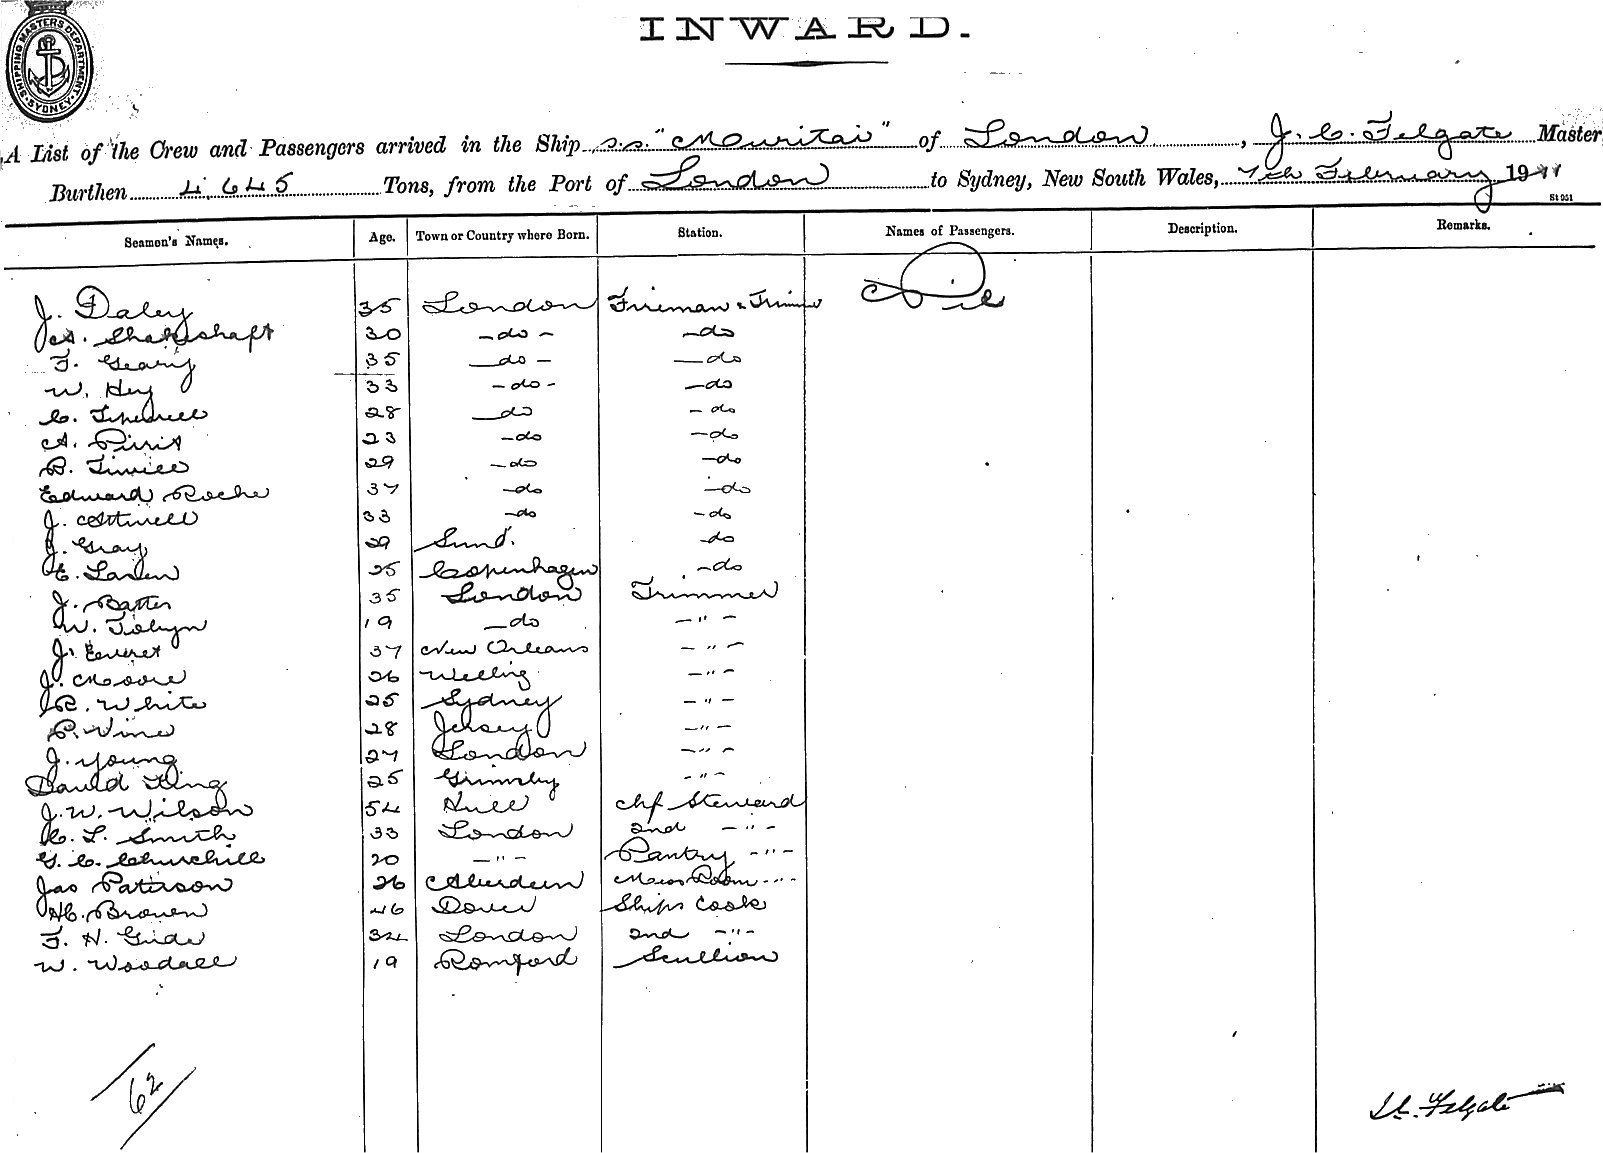 SHIPPING MASTERS DEPARTMENT SYDNEY
INWARD.
A List of the Crew and Passengers arrived in the Ship s.s. "Mouritai" of London, J. C. Felgate Master
Burthen 4,645 Tons, from the Port of London to Sydney, New South Wales, 7th February 1911
St 951
Seamen's Names. Age. Town or Country where Born. Station. Names of Passengers. Description. Remarks.
J. Daley 35 London Fireman & Trimmer Nil
A. Shakeshaft 30 -do- -do
F. Geary 35 -do- -do
W. Hey 33 -do- -do
C. 28 -do -do
A. 23 -do -do
B. 29 -do -do
Edward Roche 37 -do -do
J. Attwell 33 -do -do
J. Gray 29 Sund. -do
E. Larsen 25 Copenhagen -do
J. Batter 35 London Trimmer
W. Tobyn 19 -do -"-
J. Everet 37 New Orleans -"-
J. Moore 26 Welling -"-
R. White 25 Sydney -"-
P. Vine 28 Jersey -"-
J. Young 27 London -"-
David King 25 Grimsby -"-
J. W. Wilson 54 Hull Chf Steward
C. L. Smith 33 London 2nd -"-
G. C. Churchill 20 -"- Pantry -"-
Jas Paterson 26 Aberdeen Mess Room -"-
H. Brown 46 Dover Ships Cook
F. H. Gude 34 London 2nd -"-
W. Woodall 19 Romford Scullion
62
Felgate